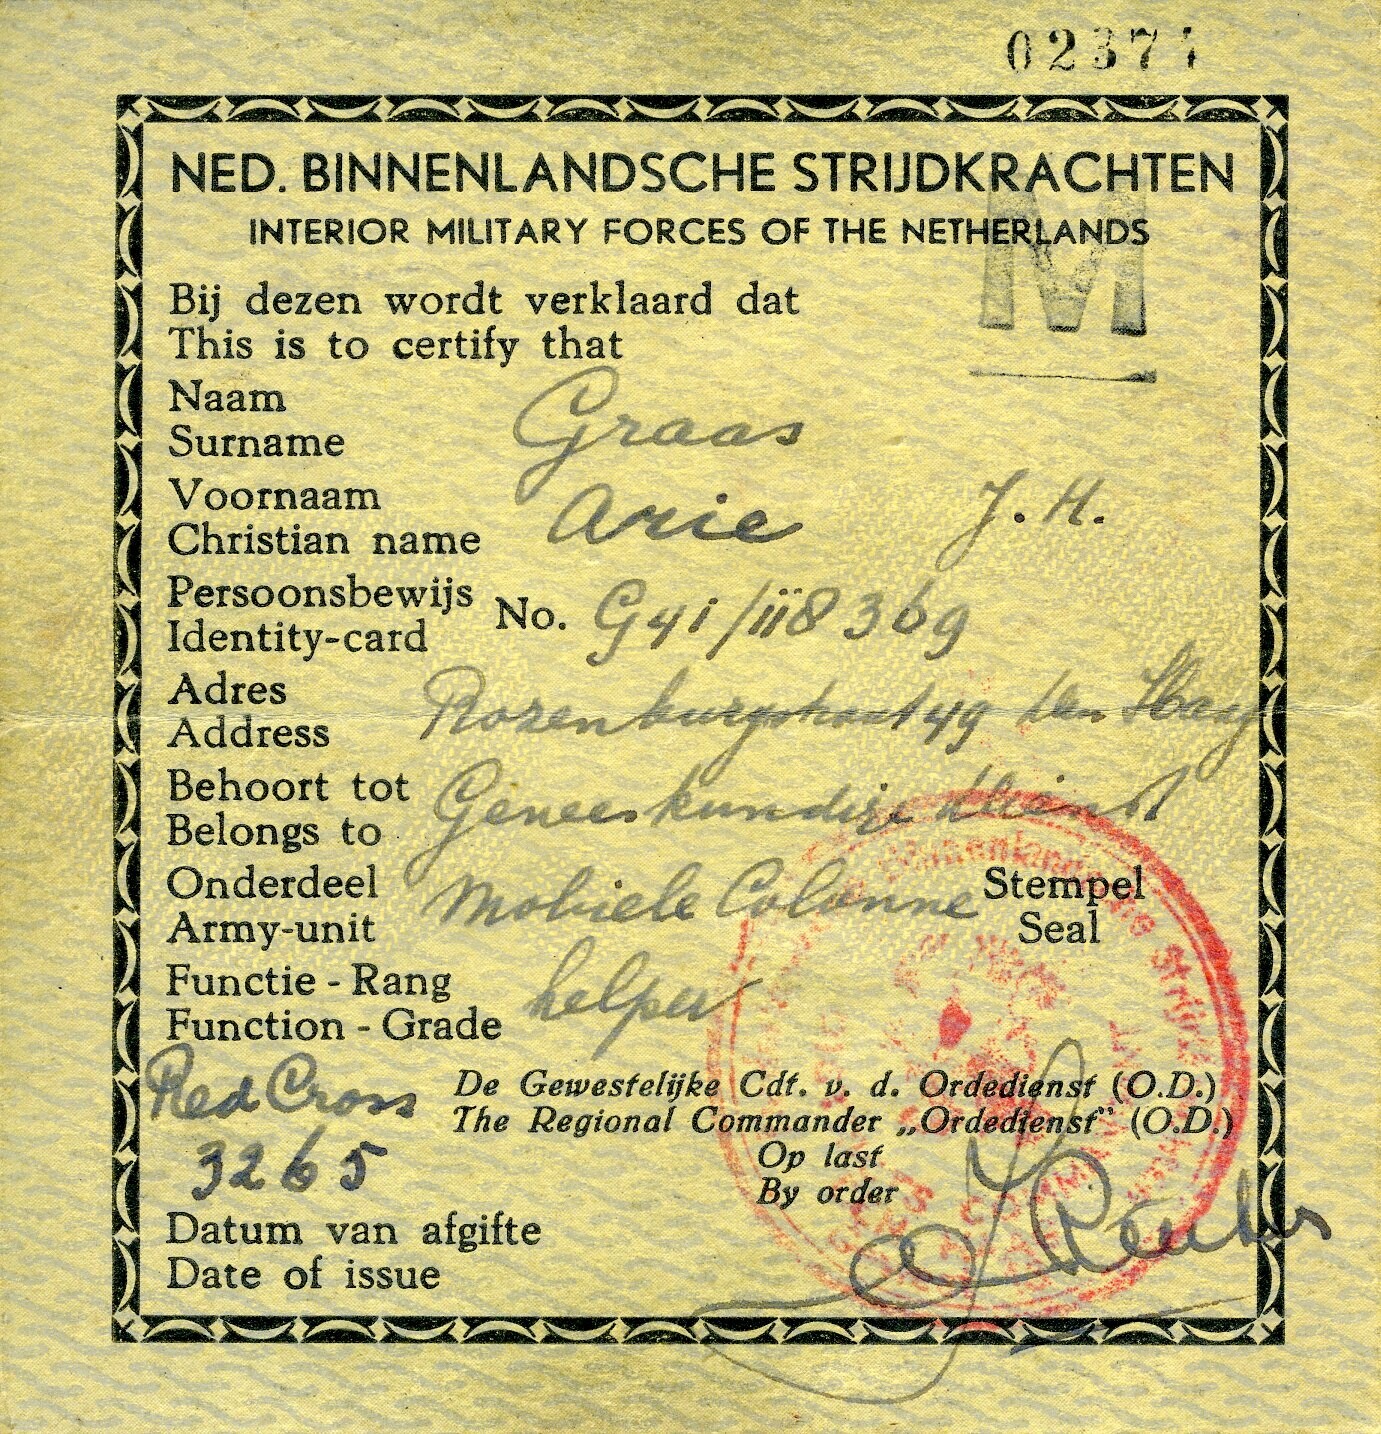 02371
NED. BINNENLANDSCHE STRIJDKRACHTEN
INTERIOR MILITARY FORCES OF THE NETHERLANDS
M
Bij dezen wordt verklaard dat
This is to certify that
Naam
Surname
Graas
Voornaam
Christian name
Arie J. H.
Persoonsbewijs
Identity-card
No. G41/118369
Adres
Address
Rozenburgstraat 49 den Haag
Behoort tot
Belongs to
Geneeskundige dienst
Onderdeel
Army-unit
Mobiele Colonne
Stempel
Seal
Functie - Rang
Function - Grade
helper
Red Cross
3265
De Gewestelijke Cdt. v. d. Ordedienst (O.D.)
The Regional Commander „Ordedienst” (O.D.)
Op last
By order
Datum van afgifte
Date of issue